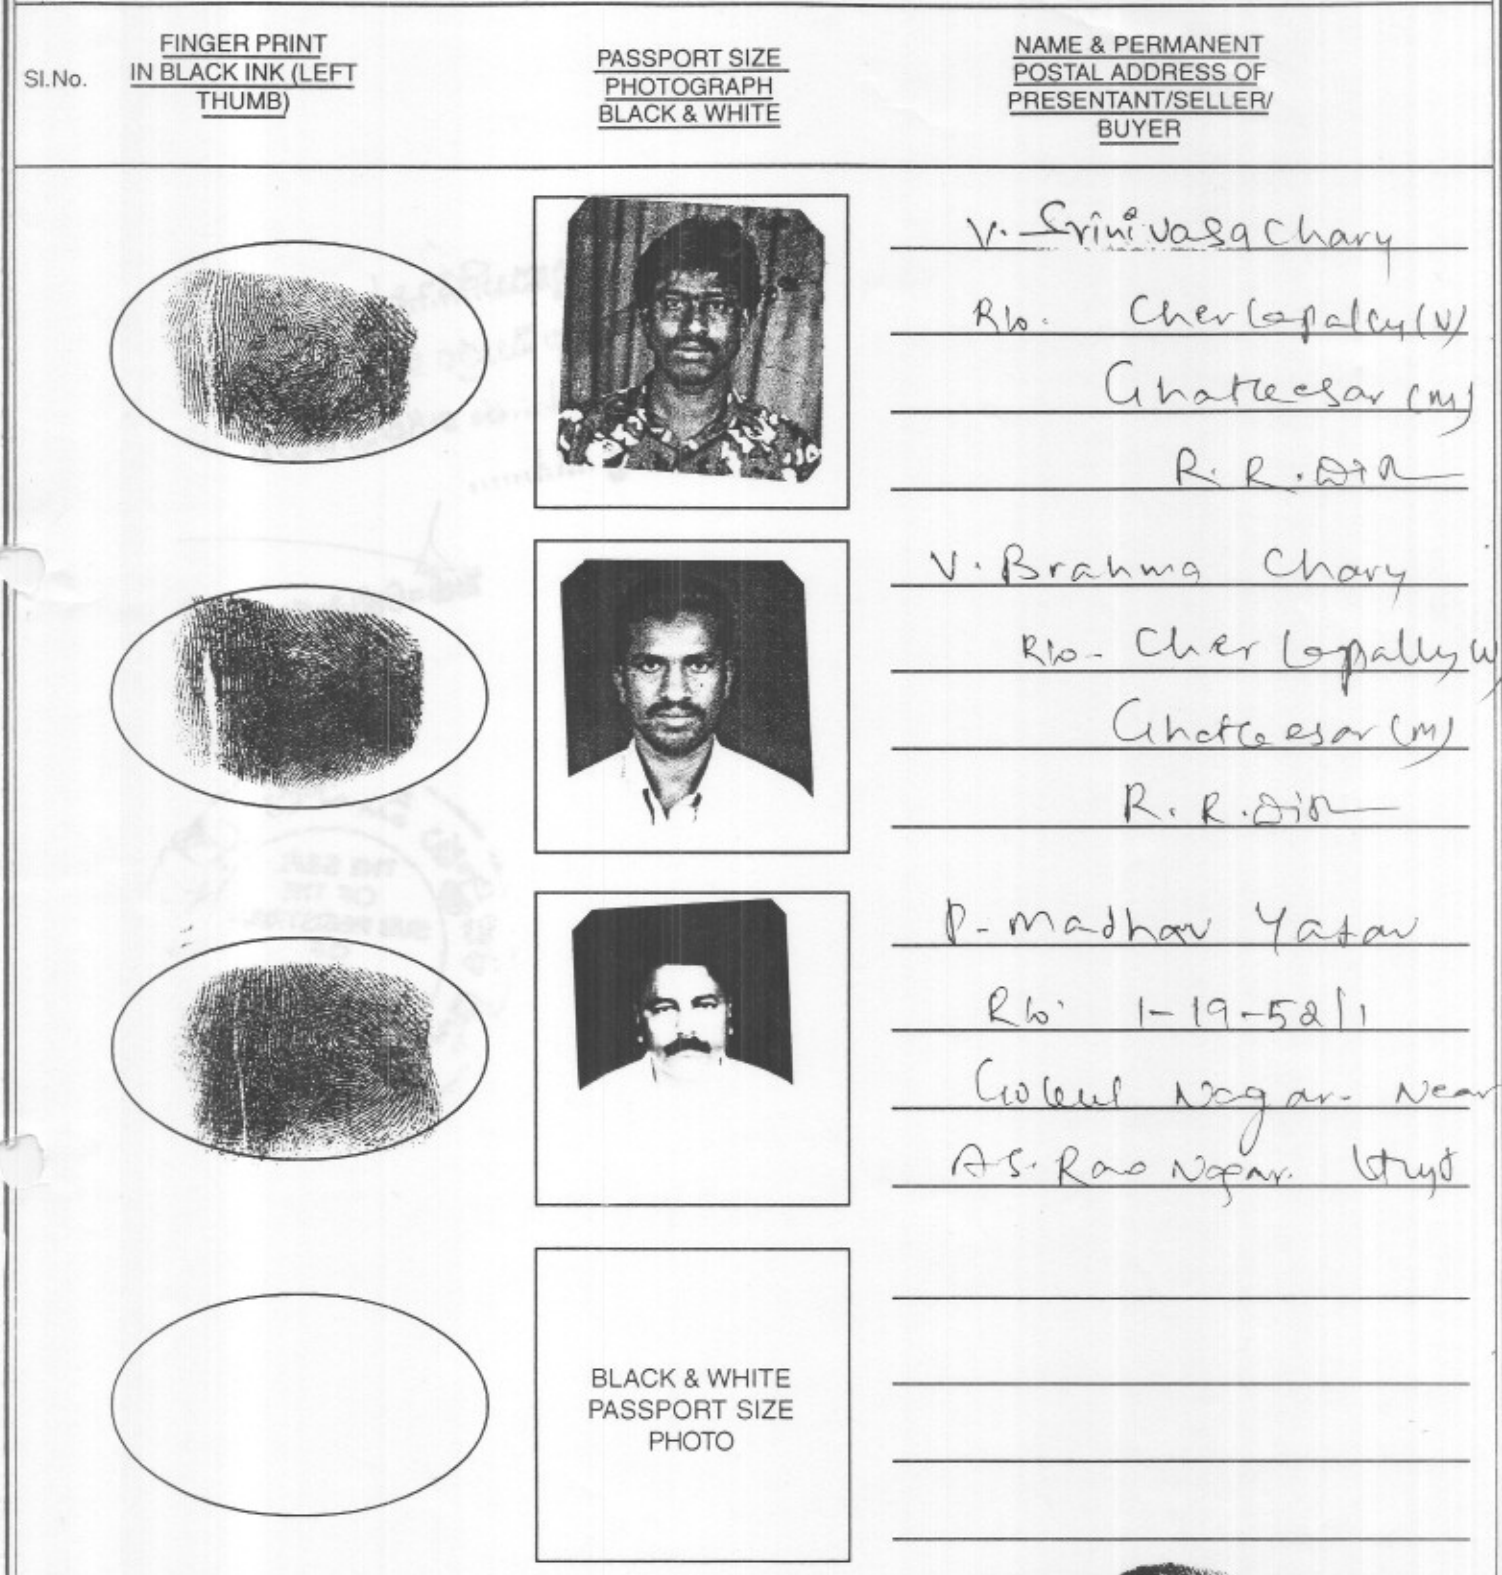 Sl.No.
FINGER PRINT
IN BLACK INK (LEFT
THUMB)
PASSPORT SIZE
PHOTOGRAPH
BLACK & WHITE
NAME & PERMANENT
POSTAL ADDRESS OF
PRESENTANT/SELLER/
BUYER
V. Srinivasa Chary
R/o. Cherlapally (V)
Ghatkesar (M)
R. R. Dist
V. Brahma Chary
R/o- Cherlapally (V)
Ghatkesar (M)
R. R. Dist
P. Madhav Yadav
R/o 1-19-52/1
Gokul Nagar. Near
A.S. Rao Nagar. Hyd
BLACK & WHITE
PASSPORT SIZE
PHOTO